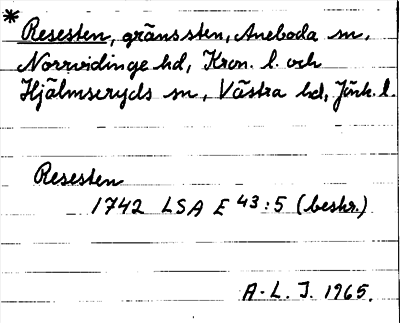 * Resesten, gränssten, Aneboda sn,
Norrvidinge hd, Kron. l. och
Hjälmseryds sn, Västra hd, Jönk. l.
Resesten
1742 LSA E 43:5 (beskr.)
A.L.J. 1965.